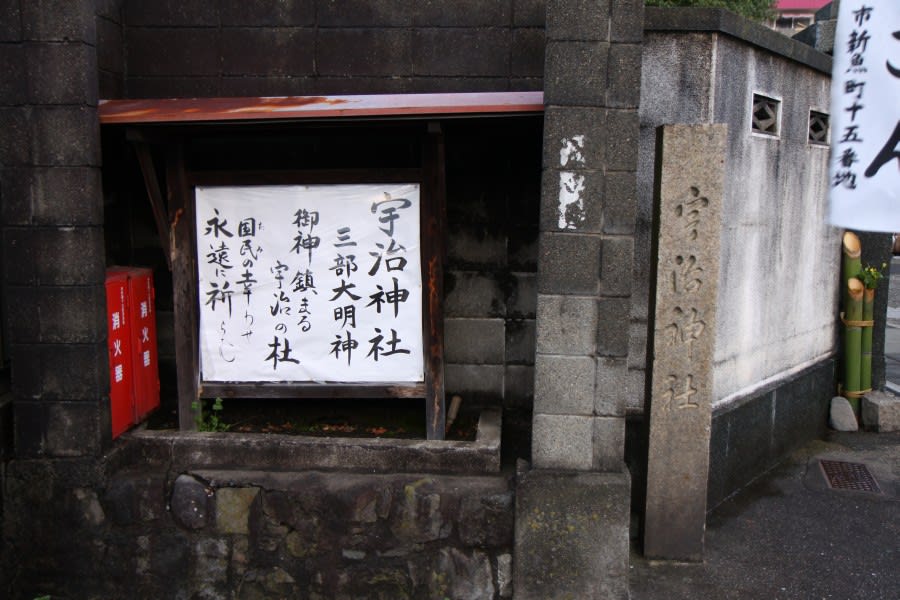 市新魚町十五番地
宇治神社
宇治神社
三部大明神
御神鎮まる
宇治の杜
国民の幸わせ
たみ
永遠に祈らし
消火器
消火器